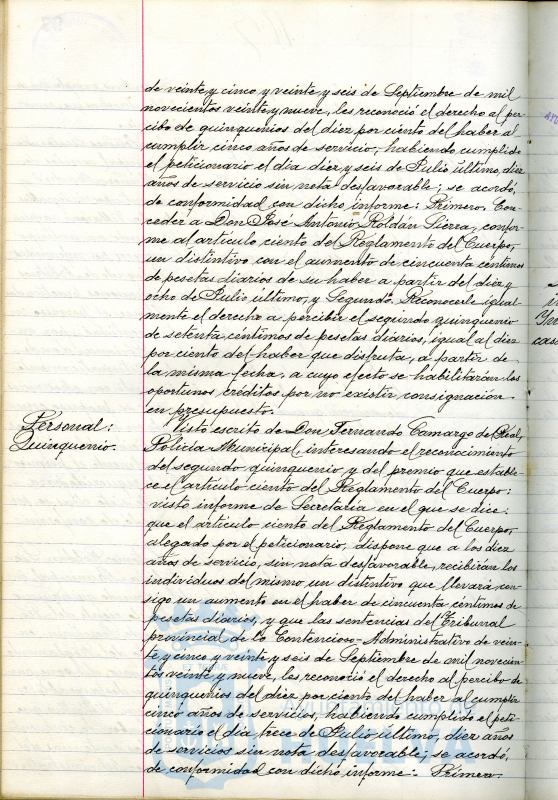 de veinte y cinco y veinte y seis de Septiembre de mil
novecientos veinte y nueve, les reconoció el derecho al per-
cibo de quinquenios del diez por ciento del haber al
cumplir cinco años de servicio, habiendo cumplido
el peticionario el día diez y seis de Julio último, diez
años de servicio sin nota desfavorable; se acordó,
de conformidad con dicho informe: Primero. Con-
ceder a Don José Antonio Roldán Sierra, confor-
me al artículo ciento del Reglamento del Cuerpo,
un distintivo con el aumento de cincuenta céntimos
de pesetas diarios de su haber a partir del diez y
ocho de Julio último, y Segundo. Reconocerle igual-
mente el derecho a percibir el segundo quinquenio
de setenta céntimos de pesetas diarios, igual al diez
por ciento del haber que disfruta, a partir de
la misma fecha, a cuyo efecto se habilitarán los
oportunos créditos por no existir consignación
en presupuesto.
Personal:
Quinquenio.
Visto escrito de Don Fernando Camargo del Real,
Policia Municipal, interesando el reconocimiento
del segundo quinquenio y del premio que estable-
ce el artículo ciento del Reglamento del Cuerpo;
visto informe de Secretaría en el que se dice:
que el artículo ciento del Reglamento del Cuerpo,
alegado por el peticionario, dispone que a los diez
años de servicio, sin nota desfavorable, recibirán los
individuos del mismo un distintivo que llevará con-
sigo un aumento en el haber de cincuenta céntimos de
pesetas diarios, y que las sentencias del Tribunal
provincial de lo Contencioso-Administrativo de vein-
te y cinco y veinte y seis de Septiembre de mil novecien-
tos veinte y nueve, les reconoció el derecho al percibo de
quinquenios del diez por ciento del haber al cumplir
cinco años de servicios, habiendo cumplido el peti-
cionario el día trece de Julio último, diez años
de servicios sin nota desfavorable; se acordó,
de conformidad con dicho informe: Primero.